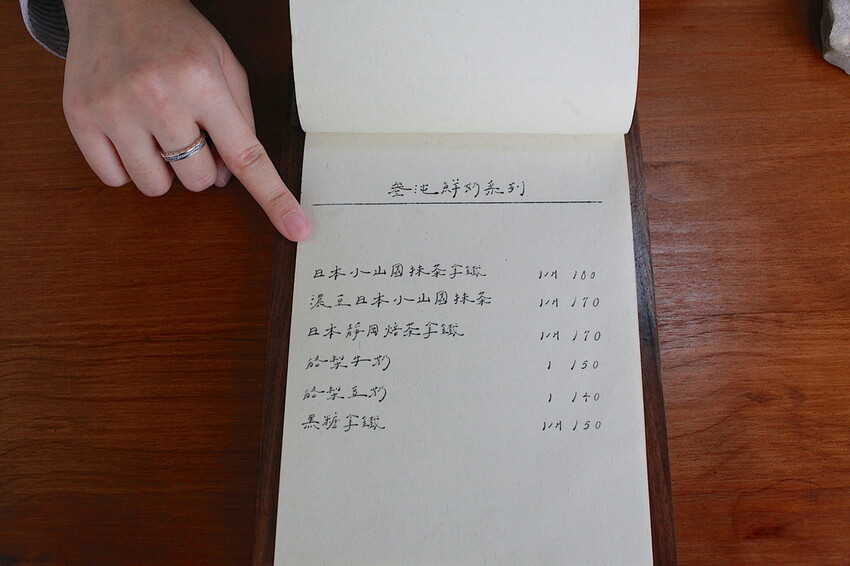 叄沌鮮奶系列
日本小山園抹茶拿鐵 I/H 180
濃豆日本小山園抹茶 I/H 170
日本靜岡焙茶拿鐵 I/H 170
酪梨牛奶 I 150
酪梨豆奶 I 140
黑糖拿鐵 I/H 150